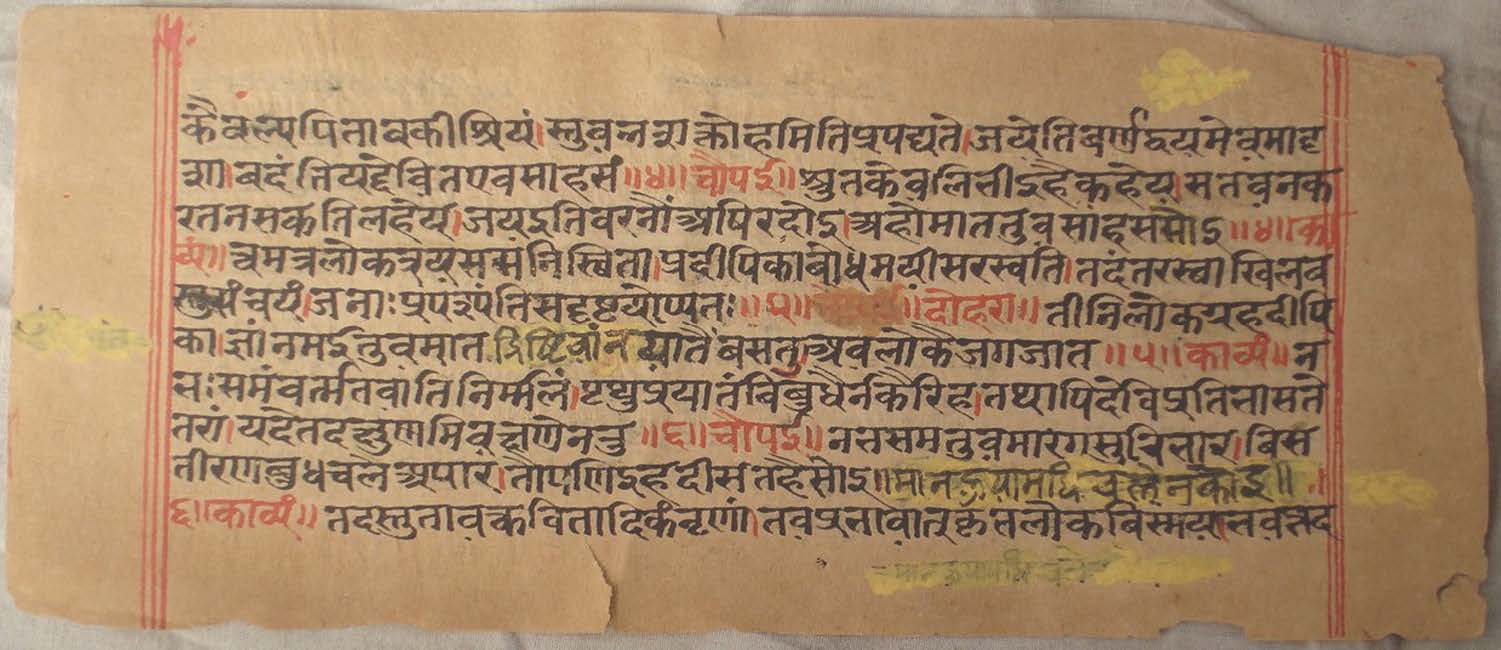 कैवल्यपितावकीश्रियं। स्तुवन्नशक्तोहमितिप्रपद्यते। जयेतिवर्णद्वयमेवमादृ
शा। वदंतियद्देवितएवसाहसं॥४॥ चौपई॥ श्रुतकेवलिभीऽहैकहेय। सतवनक
रतनसकतिलहेय। जयइतिवरनौंअपिरदोइ। अहोमाततुवसाहससोइ॥४॥ का
व्यं॥ त्वमत्रलोकत्रयसद्मनिस्थिता। प्रदीपिकाबोधमयीसरस्वति। तदंतरस्थाखिलव
स्तुसंचयं। जनाः प्रपश्यंतिसदृष्टयोप्यतः॥५॥ दोहरा॥ तीनिलोकग्रहदीपि
का। ज्ञांनमईतुवमात यातैंबसतुअवलोकैजगजात॥५॥ काव्यं॥ न
भःसमंवर्त्मतवातिनिर्म्मलं। पृथुप्रयातंविबुधैर्नकैरिह। तथापिदेविप्रतिभासते
तरां। यदेतदक्षुणमिवक्षणेनतु॥६॥ चौपई॥ नभसमतुवमारगसुचिसार। बिस
तीरणबुधचलैअपार। तापणिइहदीसतहैसोइ॥
६॥ काव्यं॥ तदस्तुतावत्कवितादिकंनृणां। तवप्रभावात्कृतलोकविस्मयं। भवेत्तद